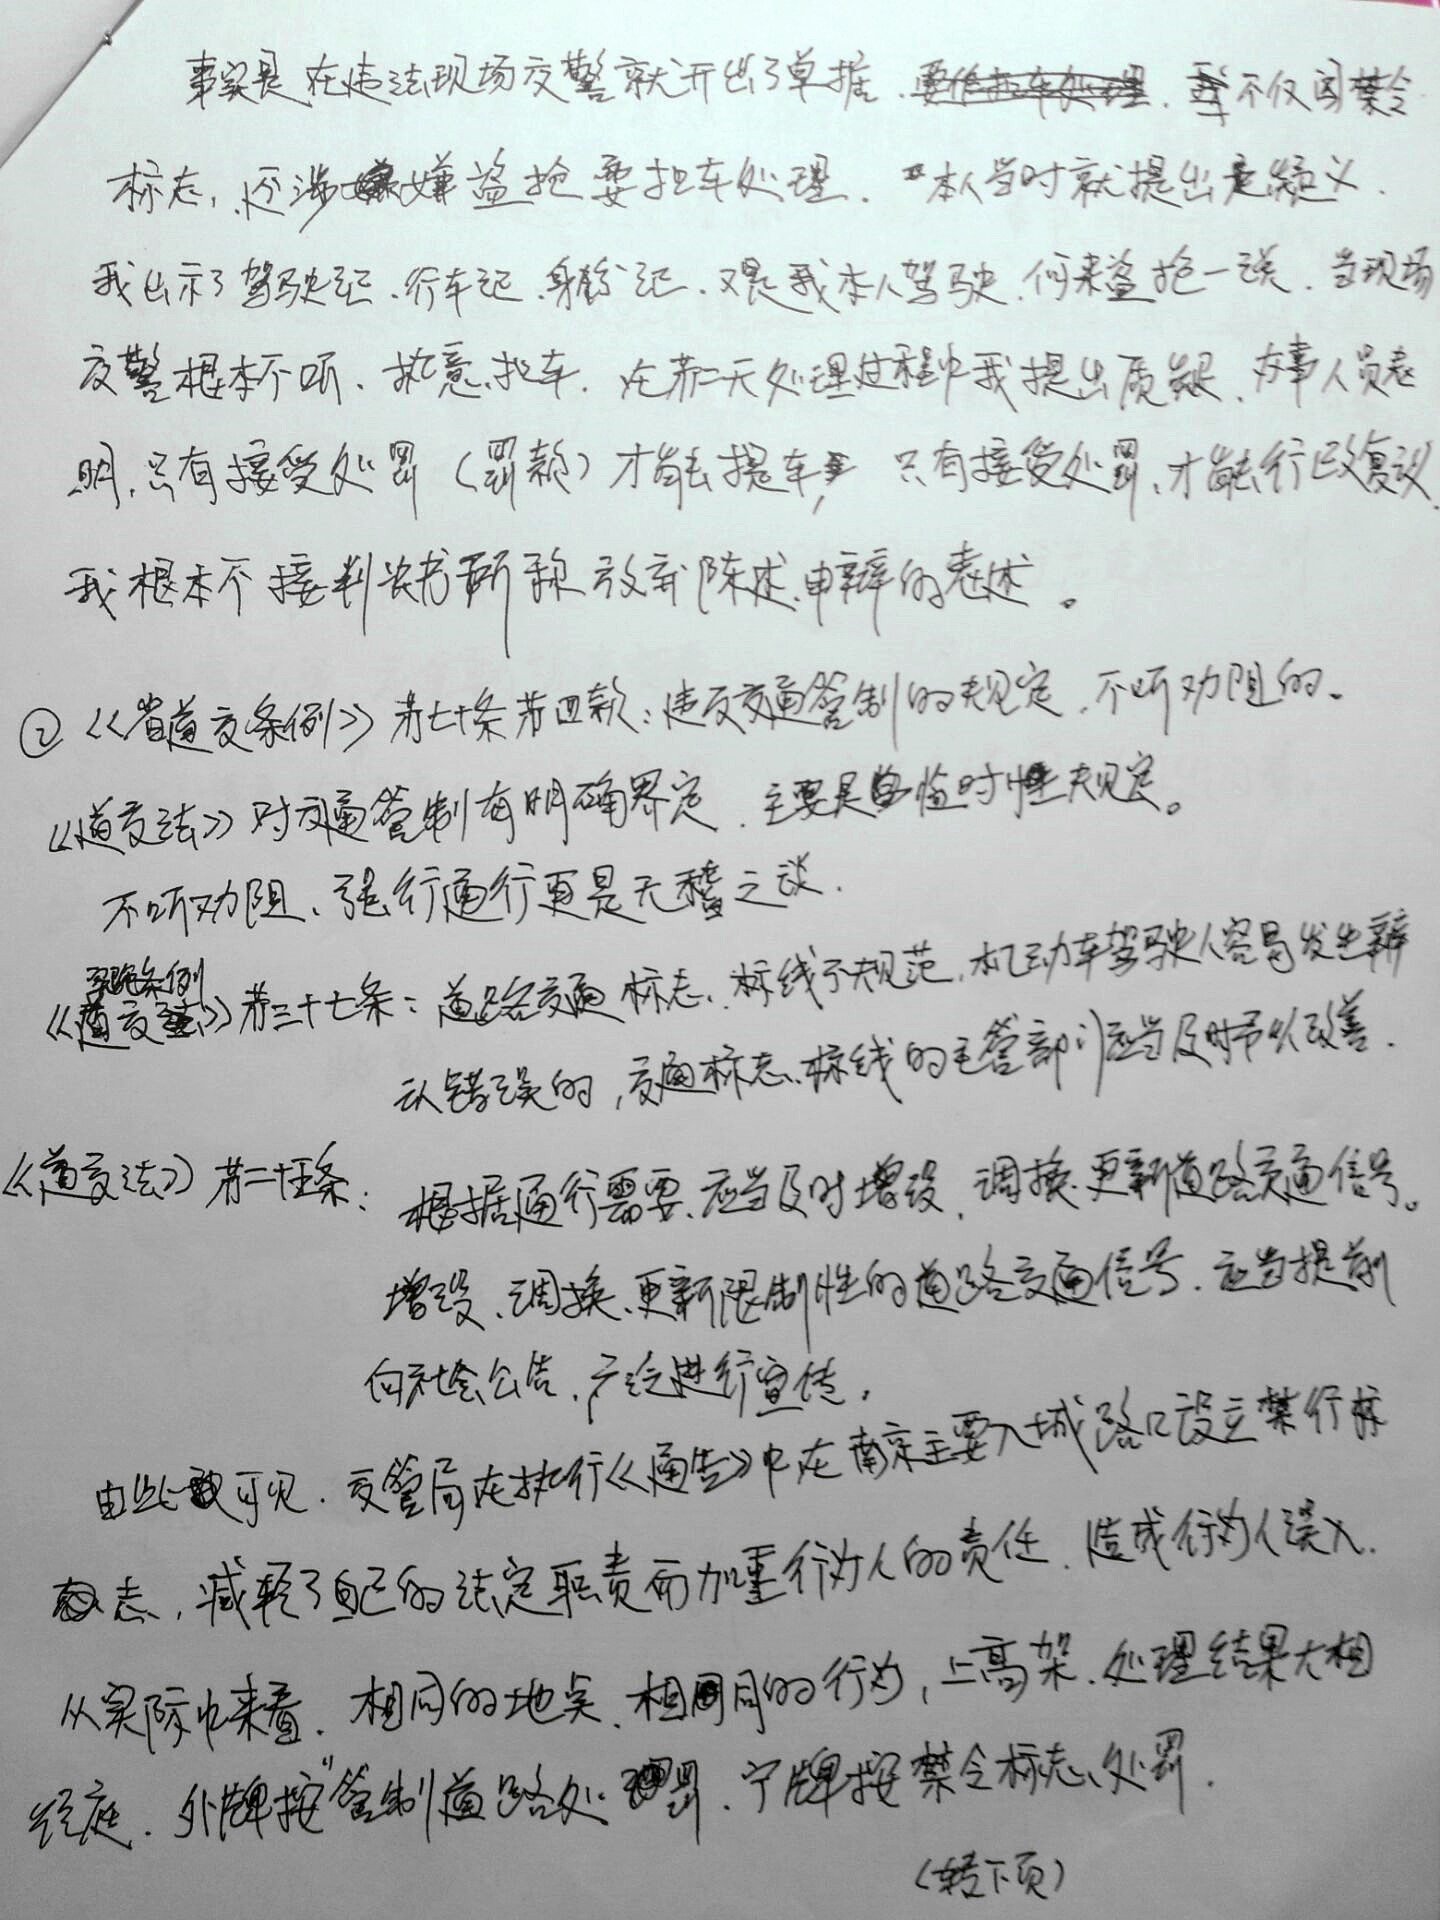 事实是在违法现场交警就开出了单据、不仅因禁令
标志，还涉嫌盗抢要拖车处理。本人当时就提出是疑义．
我出示了驾驶证、行车证、身份证、又是我本人驾驶、何来盗抢一说．当现场
交警根本不听、执意拖车．在第二天处理过程中我提出质疑、办事人员表
明，只有接受处罚（罚款）才能提车，只有接受处罚、才能行政复议．
我根本不接判决书所称放弃陈述、申辩的表述。
② 《省道交条例》第七十条第四款：违反交通管制的规定、不听劝阻的。
《道交法》对交通管制有明确界定、主要是临时性规定。
不听劝阻、强行通行更是无稽之谈．
实施条例
《道交法》第三十七条：道路交通标志、标线不规范，机动车驾驶人容易发生辨
认错误的，交通标志、标线的主管部门应当及时予以改善．
《道交法》第二十五条：根据通行需要、应当及时增设、调换、更新道路交通信号。
增设、调换、更新限制性的道路交通信号、应当提前
向社会公告、广泛进行宣传。
由此可见．交管局在执行《通告》中在南京主要入城路口设立禁行标
志，减轻了自己的法定职责而加重行为人的责任、造成行为人误入．
从实际中来看．相同的地点、相同的行为，上高架．处理结果大相
径庭．外牌按"管制道路处罚、宁牌按禁令标志、处罚．
（转下页）